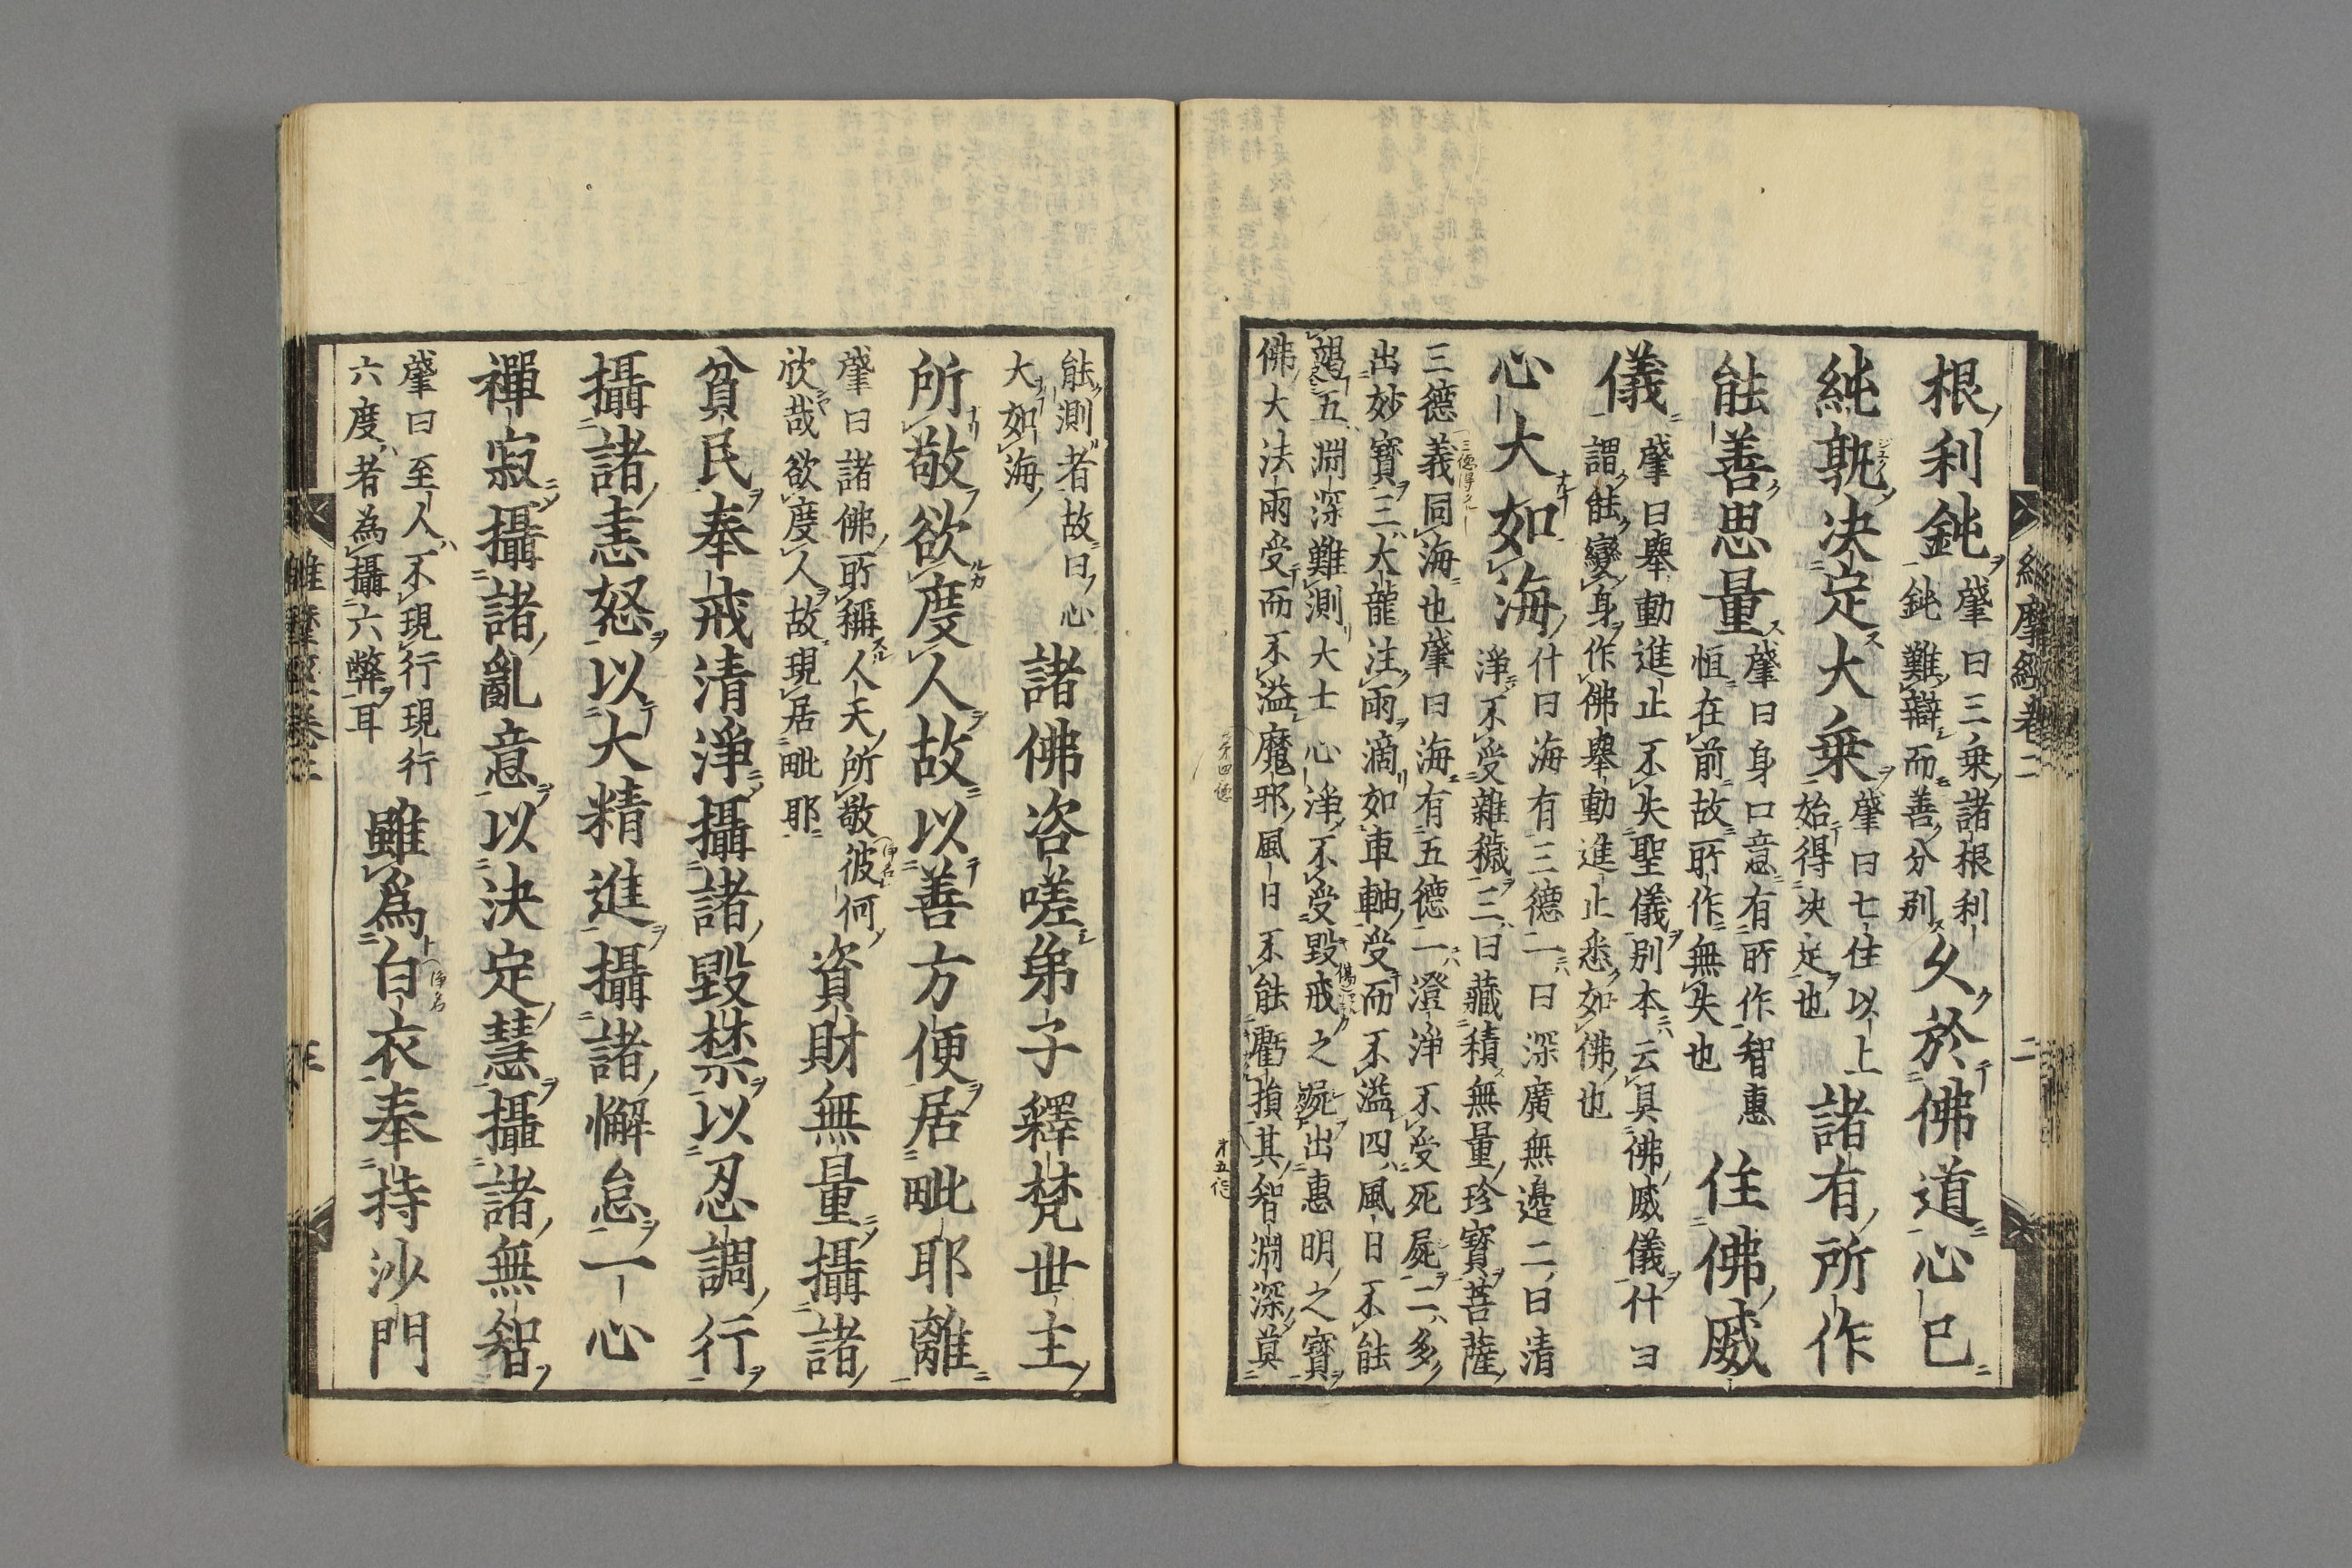 根利鈍
肇曰三乗諸根利
鈍難辯而善分別
久於佛道心已
純孰决定大乗
肇曰七住以上
始得决定也
諸有所作
能善思量
肇曰身口意有所作智惠
恒在前故所作無失也
住佛威
儀
肇曰舉動進止不失聖儀別本云具佛威儀什曰
謂能變身作佛舉動進止悉如佛也
心大如海
什曰海有三德一曰深廣無邉二曰清
淨不受雜穢三曰藏積無量珍寳菩薩
三德義同海也肇曰海有五德一澄淨不受死屍二多
出妙寳三大龍注雨滴如車軸受而不溢四風日不能
竭五淵深難測大士心淨不受毀戒之屍出惠明之寳
佛大法雨受而不溢魔邪風日不能虧損其智淵深莫
維摩經卷二
二
能測者故曰心
大如海
諸佛咨嗟弟子釋梵世主
所敬欲度人故以善方便居毗耶離
肇曰諸佛所稱人天所敬彼何
欣哉欲度人故現居毗耶
資財無量攝諸
貧民奉戒清淨攝諸毀禁以忍調行
攝諸恚怒以大精進攝諸懈怠一心
禪寂攝諸亂意以决定慧攝諸無智
肇曰至人不現行現行
六度者為攝六弊耳
雖爲白衣奉持沙門